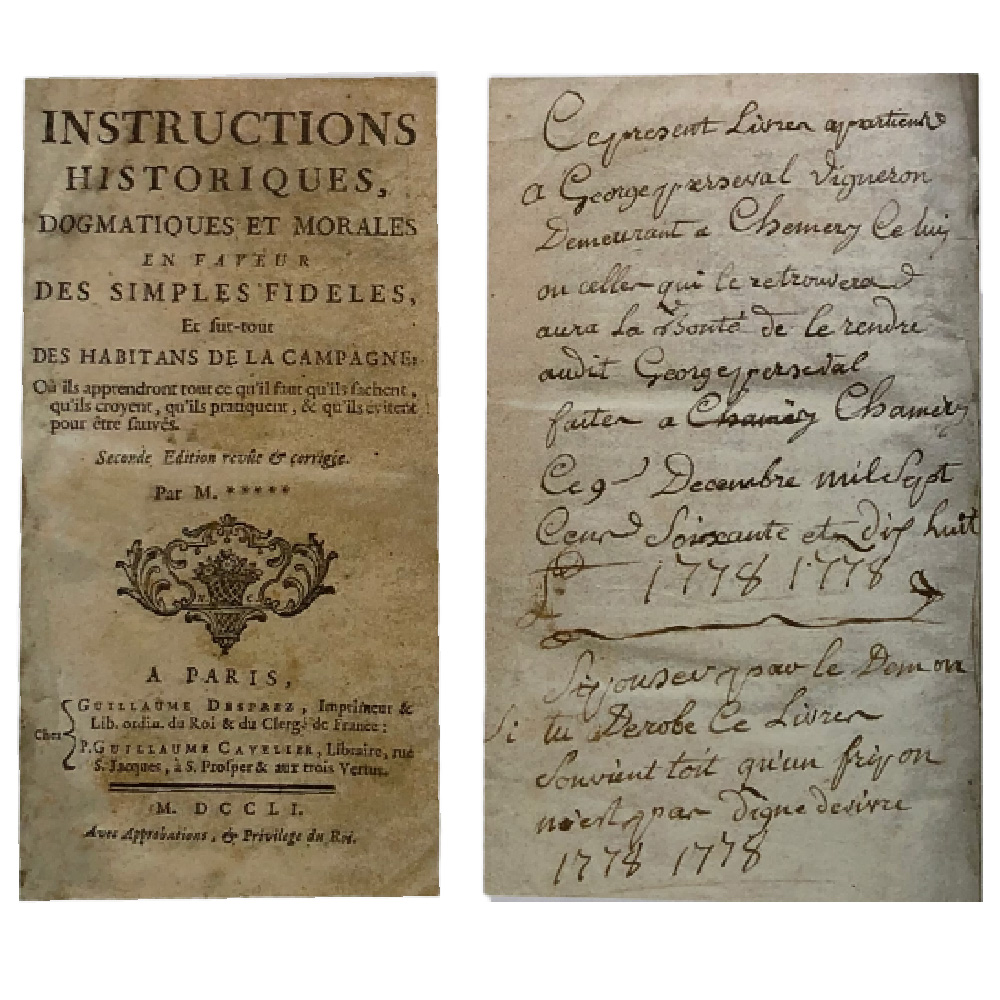 INSTRUCTIONS
HISTORIQUES,
DOGMATIQUES ET MORALES
EN FAVEUR
DES SIMPLES FIDELES,
Et sur-tout
DES HABITANS DE LA CAMPAGNE:
Où ils apprendront tout ce qu'il faut qu'ils sachent,
qu'ils croyent, qu'ils pratiquent, & qu'ils evitent
pour être sauvés.
Seconde Edition revûe & corrigée.
Par M. *****
A PARIS,
Chez
GUILLAUME DESPREZ, Imprimeur &
Lib. ordin. du Roi & du Clergé de France:
P. GUILLAUME CAVELIER, Libraire, rue
S. Jacques, à S. Prosper & aux trois Vertus.
M. DCCLI.
Avec Approbations, & Privilege du Roi.
Ce present Livrer apartient
a George perseval Vigneron
Demeurant a Chemery Celuy
ou celler qui le retrouvera
aura la Bonté de le rendre
audit George perseval
faiter a Chamery Chamery
Ce 9 Decembre mil Sept
Cent Soixante et dix huit
1778 1778
par le Demon
Si tu Derobe Ce Livrer
Souvient toit qu'un fripon
n'est par Digne de vivre
1778 1778